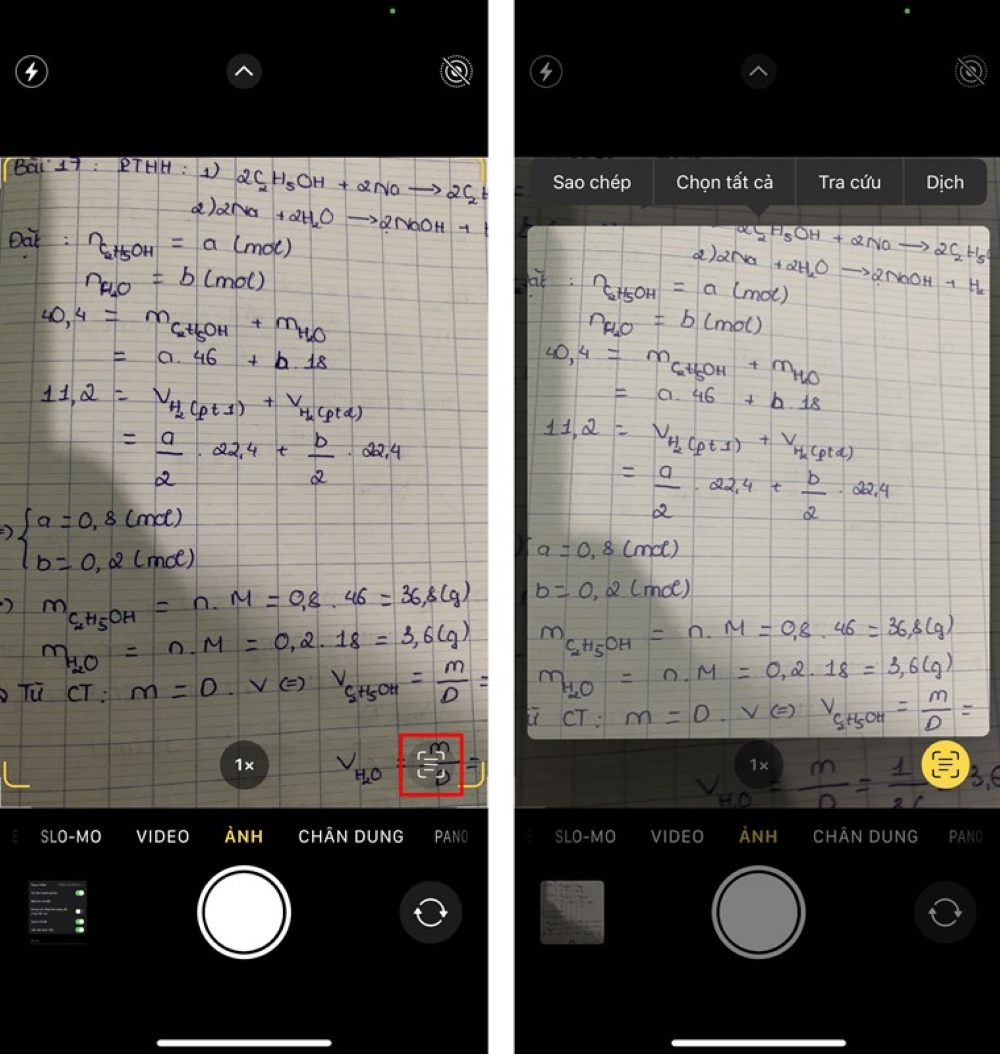 Bài 17 : PTHH : 1) 2C₂H₅OH + 2Na → 2C₂H
2) 2Na + 2H₂O → 2NaOH + H
Đặt : n_C₂H₅OH = a (mol)
n_H₂O = b (mol)
40,4 = m_C₂H₅OH + m_H₂O
= a. 46 + b. 18
11,2 = V_H₂(pt1) + V_H₂(pt2)
= a/2 . 22,4 + b/2 . 22,4
=> { a = 0,8 (mol)
b = 0,2 (mol)
=> m_C₂H₅OH = n. M = 0,8 . 46 = 36,8 (g)
m_H₂O = n. M = 0,2 . 18 = 3,6 (g)
Từ CT : m = D . V (=) V_C₂H₅OH = m/D =
V_H₂O = m/D =
1x
SLO-MO VIDEO ẢNH CHÂN DUNG PANO
Sao chép Chọn tất cả Tra cứu Dịch
2C₂H₅OH + 2Na → 2C₂H₅
2) 2Na + 2H₂O → 2NaOH + H₂
đặt : n_C₂H₅OH = a (mol)
n_H₂O = b (mol)
40,4 = m_C₂H₅OH + m_H₂O
= a. 46 + b. 18
11,2 = V_H₂(pt1) + V_H₂(pt2)
= a/2 . 22,4 + b/2 . 22,4
a = 0,8 (mol)
b = 0,2 (mol)
m_C₂H₅OH = n. M = 0,8 . 46 = 36,8 (g)
m_H₂O = n. M = 0,2 . 18 = 3,6 (g)
CT : m = D . V (=) V_C₂H₅OH = m/D =
V_H₂O = m/D = 3,6
1x
SLO-MO VIDEO ẢNH CHÂN DUNG PANO